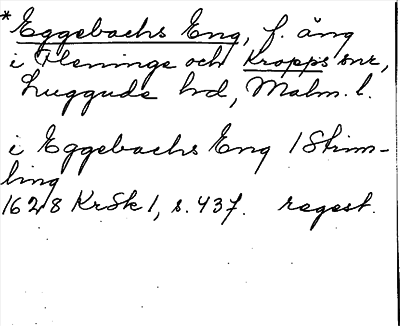 *Eggebachs Eng, f. äng
i Fleninge och Kropps snr,
Luggude hd, Malm. l.
i Eggebachs Eng 1 Skim-
ling
1628 KrSk 1, s. 437. regest.